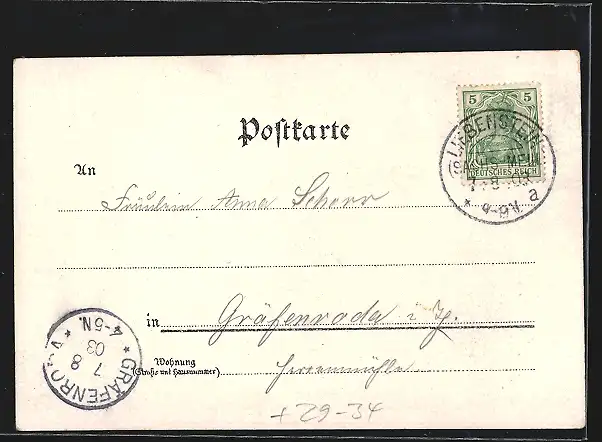 Postkarte
5 5
LIEBENSTEIN
DEUTSCHES REICH
9-9V. a
An
Fräulein Anna Schorr
in Gräfenroda i. Th.
Wohnung
(Straße und Hausnummer)
Herrenmühle
GRÄFENRO
7 8
03
4-5N.
+ 29-34